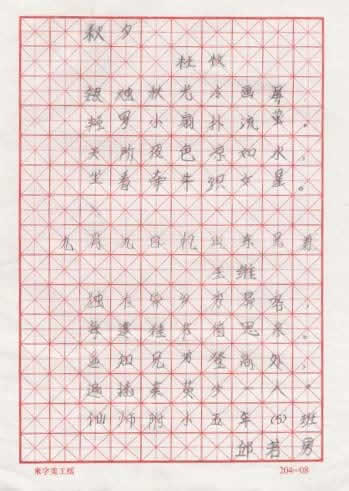 秋夕
杜牧
银烛秋光冷画屏
轻罗小扇扑流萤。
天阶夜色凉如水，
坐看牵牛织女星。
九月九日忆山东兄弟
王维
独在异乡为异客，
每逢佳节倍思亲。
遥知兄弟登高处，
遍插茱萸少一人。
仙师附小五年(5)班
邱若男
东字美工纸
204-08